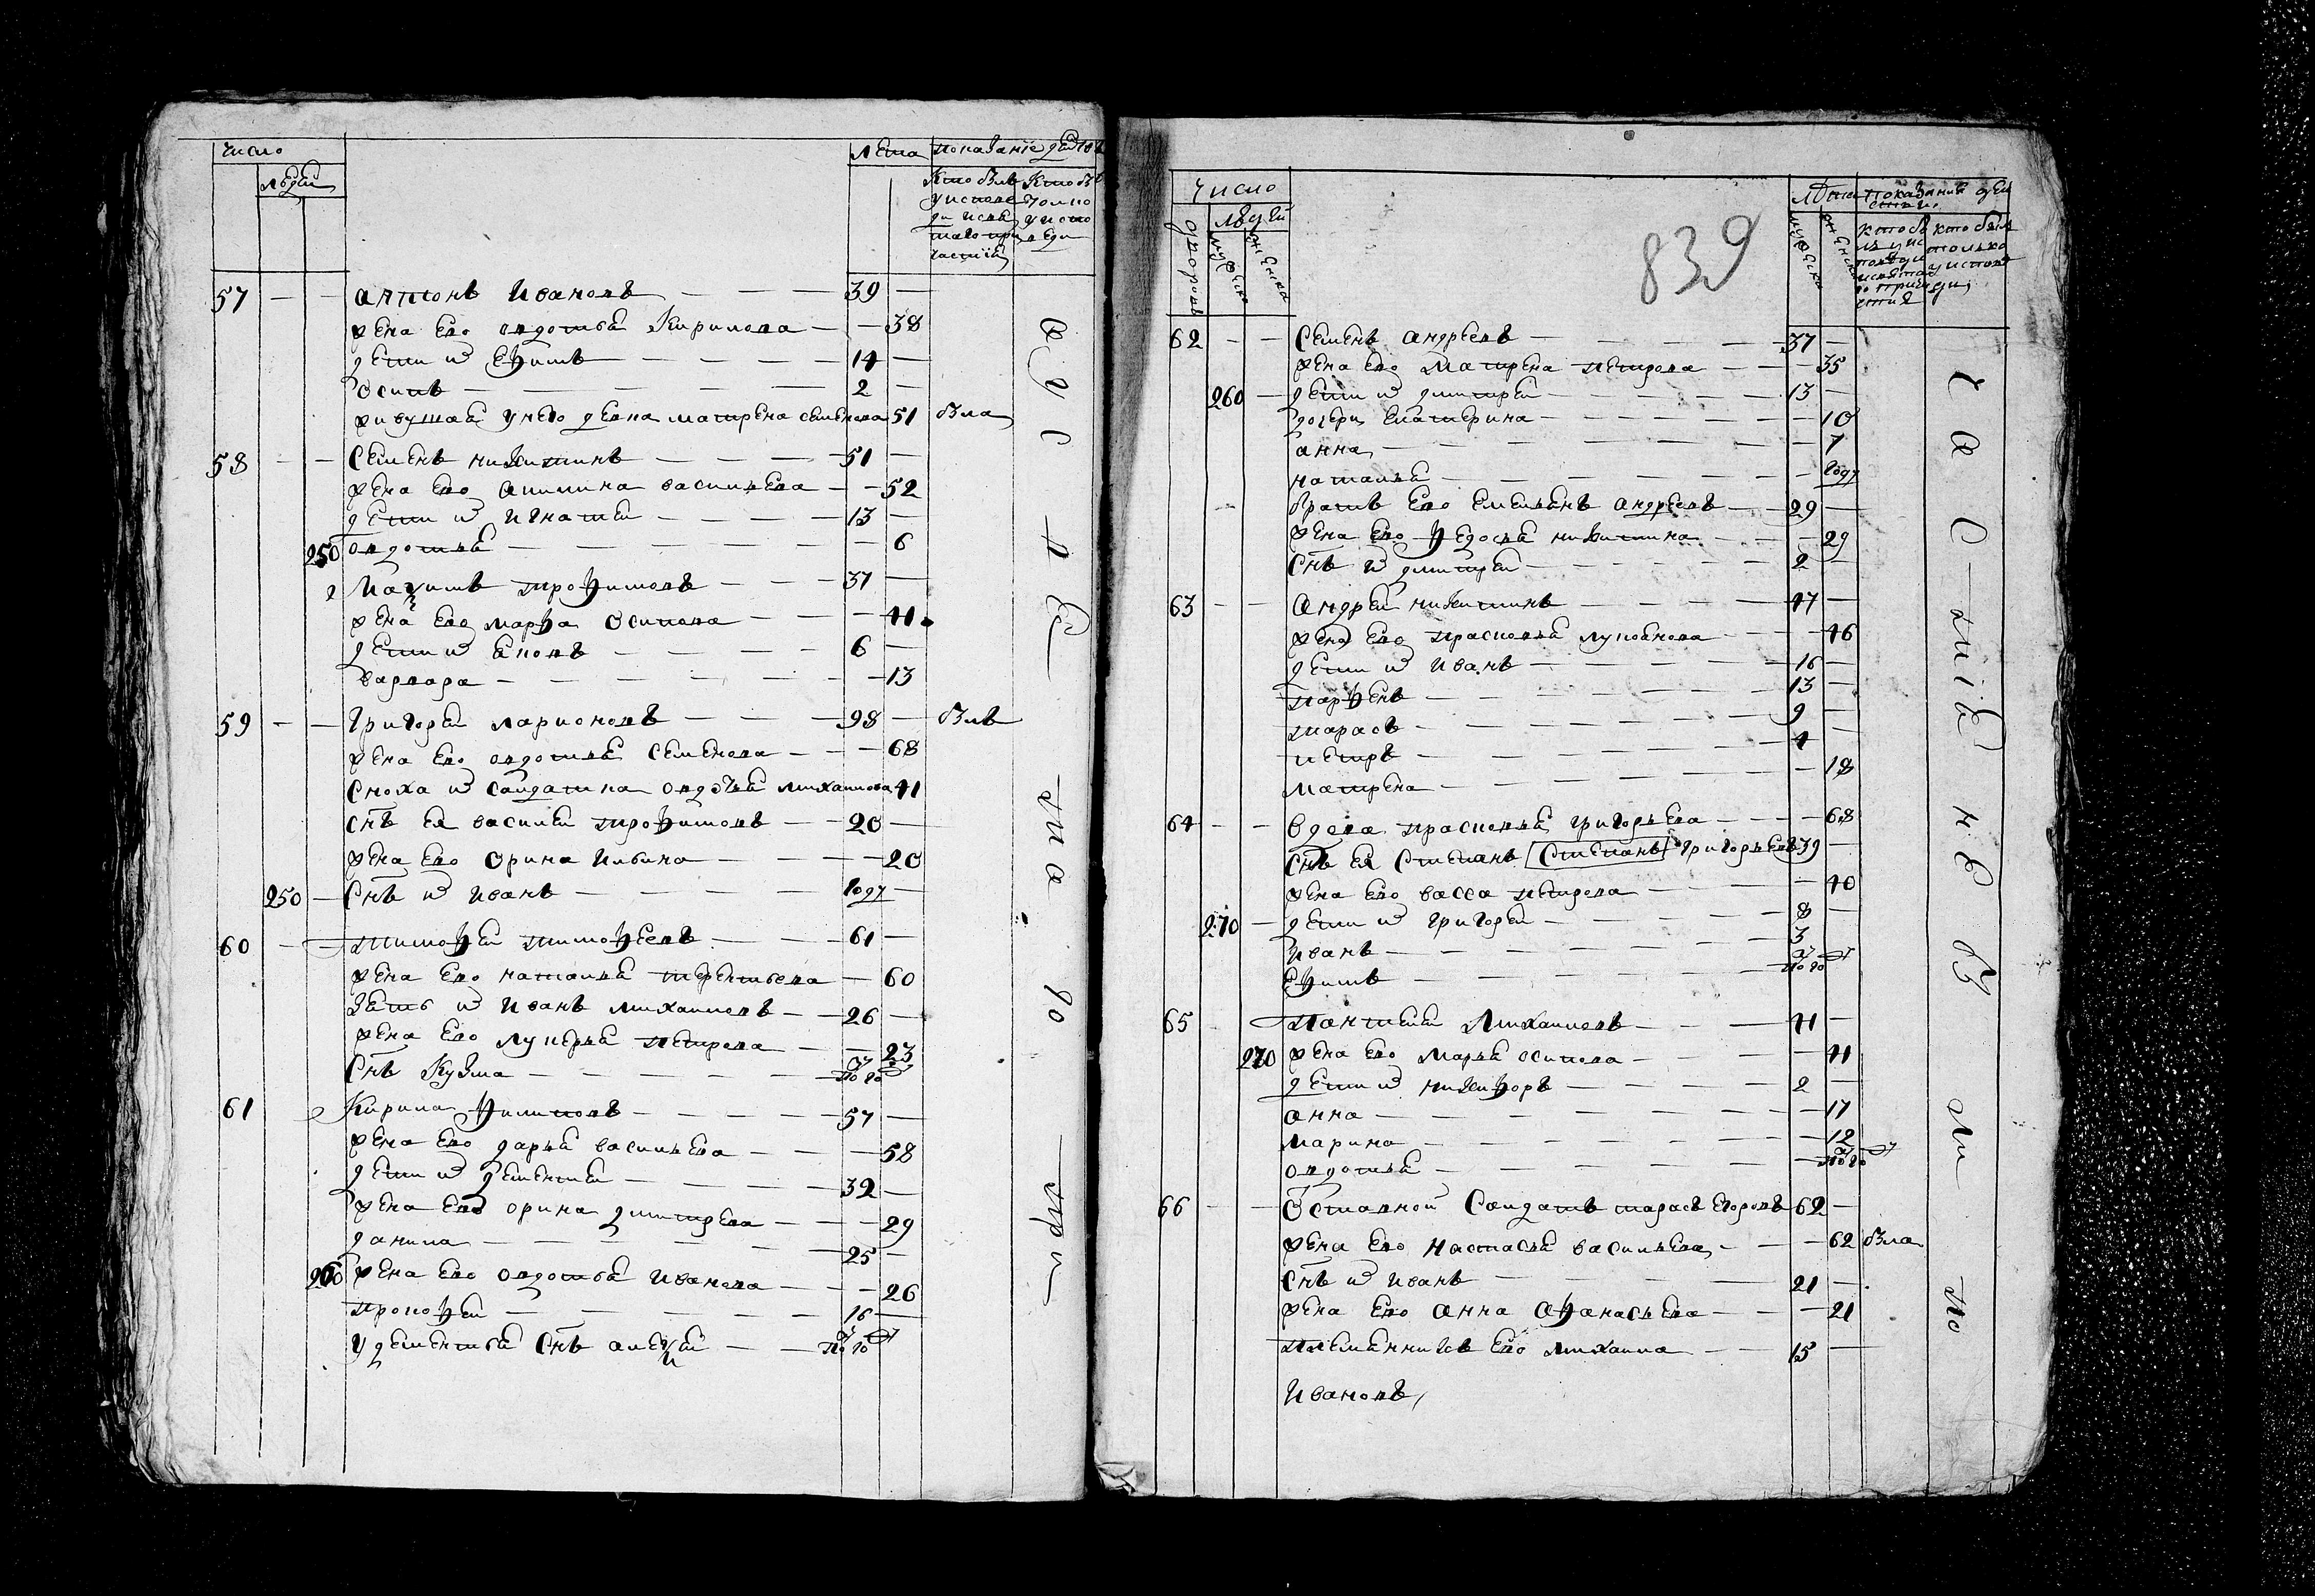 число
людей
лета показаніе действ
кто былъ у исповеди и святаго причастія
кто былъ только у исповеди
57 — — антонъ Ивановъ — — — 39 —
жена Его овдотья Кирилова — — 38
дети их Ефимъ — — — — 14 —
Осипъ — — — — — 2 —
живущая у него девка матрена семенова 51 была
58 — — Семенъ никитинъ — — — 51 —
жена Его Акилина васильева — — 52
дети их Игнатей — — — — 13 —
250 овдотья — — — — — 6
Максимъ трофимовъ — — — 37 —
жена Его марфа Осипова — — — 41
дети их Яковъ — — — — 6 —
варвара — — — — — — 13
59 — — Григорей ларионовъ — — — 98 — былъ
жена Его овдотья Семенова — — — 68
Сноха их Салдатка овдотья михаилова 41
Снъ Ея василей трофимовъ — — 20 —
жена Его Орина Ильина — — — — 20
250 — Снъ их Иванъ — — — — году —
60 — — тимофей тимофеевъ — — — 61 —
жена Его наталья терентьева — 60
Зять их Иванъ михаиловъ — — 26 —
жена Его лукерья петрова — — 23
Снъ Кузма — — — — — полго
61 Кирила Филиповъ — — — — 57 —
жена Его дарья васильева — — — 58
дети их дементей — — — — 32 —
жена Его орина дмитрева — — — 29
данила — — — — — 25 —
260 жена Его овдотья Иванова — — — 26
прокофей — — — — — 16 —
У дементья Снъ алексей — — полго
августа до при
839
число
дворовъ
людей
мужеска
женска
Лета показаніи действи
мужеска
женска
кто былъ у исповеди и святаго причастия
кто былъ только у исповеди
62 — — Семенъ андреевъ — — — — 37 —
жена Его Матрена петрова — — — 35
260 — дети их дмитрей — — — — 13 —
дочери Екатерина — — — — — 10
анна — — — — — — 7
наталья — — — — — — году
братъ Его Емельянъ андреевъ — — 29 —
жена Его Федосья никитина — — — 29
Снъ их дмитрей — — — — — 2 —
63 — — андрей никитинъ — — — — 47 —
жена Его прасковья лупоянова — — — 46
дети их Иванъ — — — — — 16 —
парфенъ — — — — — — 13 —
тарасъ — — — — — — 9 —
петръ — — — — — — 4 —
матрена — — — — — — 18
64 — — вдова прасковья григорьева — — — 68
Снъ Ея Степанъ Степанъ григорьевъ 39 —
жена Его васса петрова — — — 40
270 — дети их григорей — — — — 8 —
Иванъ — — — — — — 3
Ефимъ — — — — — полго
65 пантелей михаиловъ — — — 41 —
270 жена Его марья осипова — — — — 41
дети их никифоръ — — — — 2 —
анна — — — — — — 17
марина — — — — — — 12
овдотья — — — — — полго
66 — — Оставной Салдатъ тарасъ Егоровъ 62 —
жена Его настасья васильева — — 62 была
Снъ их Иванъ — — — — 21 —
жена Его анна афанасьева — — — 21
племянникъ Его михаила — — 15 —
Ивановъ
частія не были по